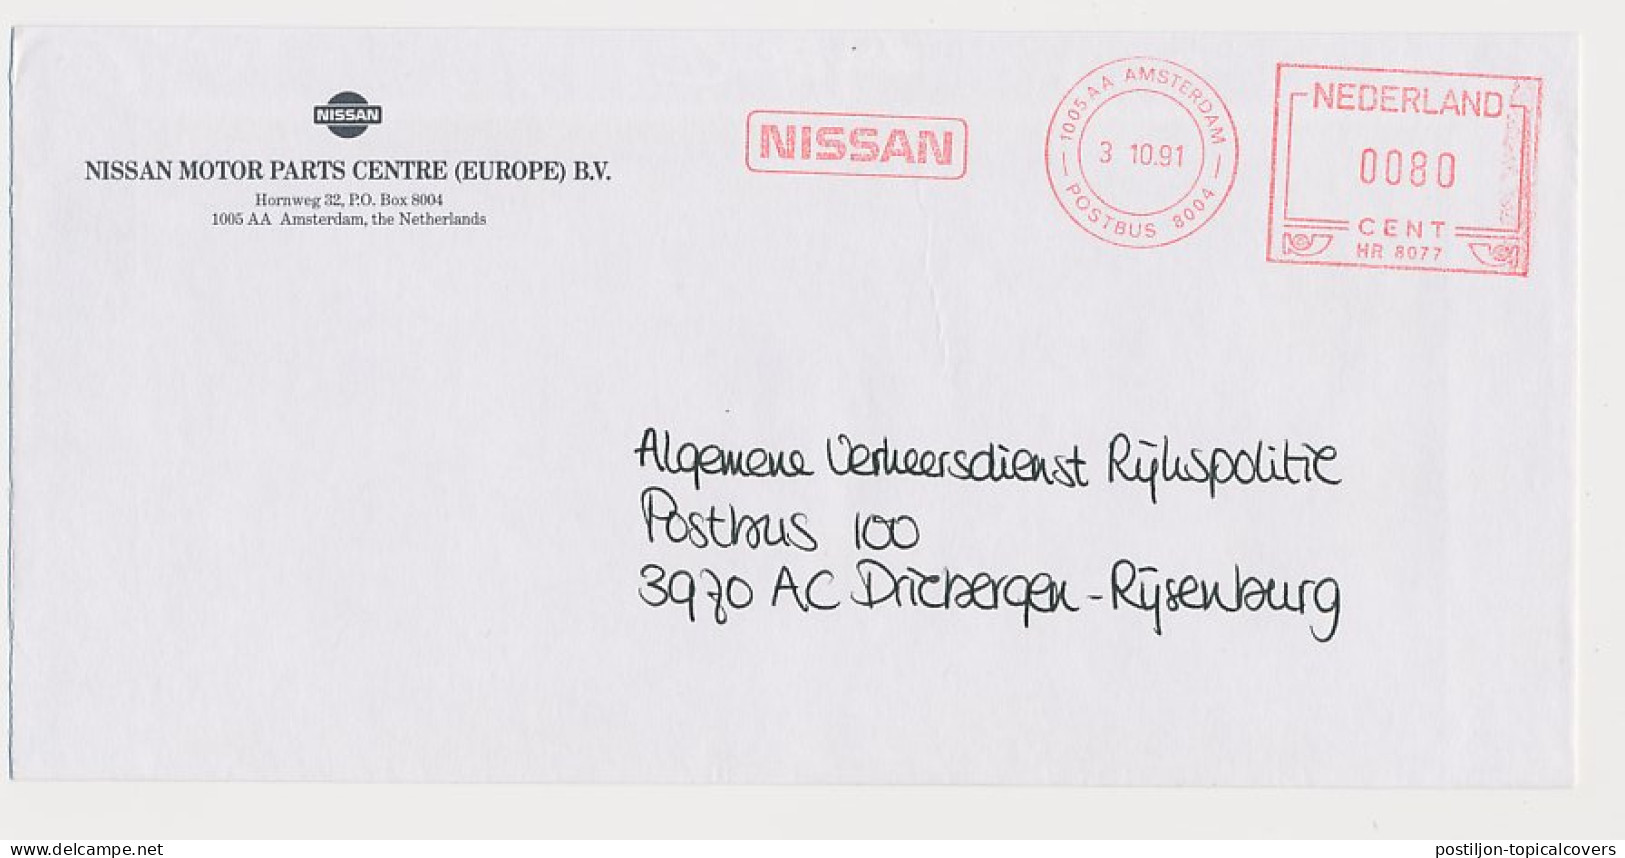 NISSAN
NISSAN MOTOR PARTS CENTRE (EUROPE) B.V.
Hornweg 32, P.O. Box 8004
1005 AA Amsterdam, the Netherlands
NISSAN
1005 AA AMSTERDAM
3 10.91
POSTBUS 8004
NEDERLAND
0080
CENT
HR 8077
Algemene Verkeersdienst Rijkspolitie
Postbus 100
3970 AC Driebergen-Rijsenburg
delcampe.net
postiljon-topicalcovers